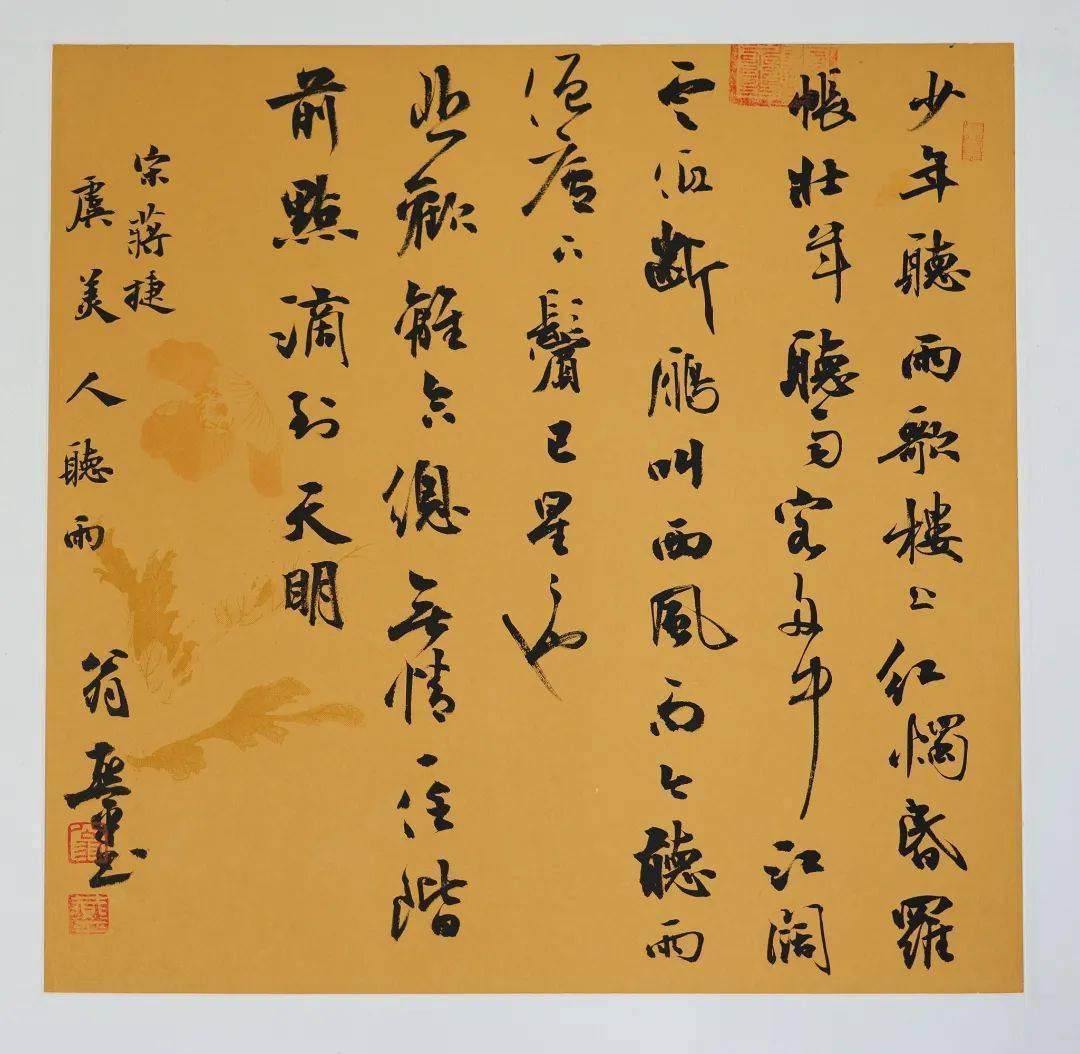 少年聽雨歌樓上紅燭昏羅
帳壯年聽雨客舟中江闊
雲低斷鴈叫西風而今聽雨
僧廬下鬢已星星也
悲歡離合總無情一任階
前點滴到天明
宋蔣捷
虞美人聽雨 翁書